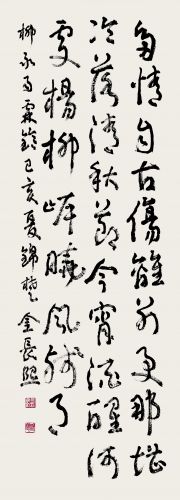 多情自古傷離別更那堪
冷落清秋節今宵酒醒何
處楊柳岸曉風殘月
柳永雨霖鈴己亥夏錦 金長熙